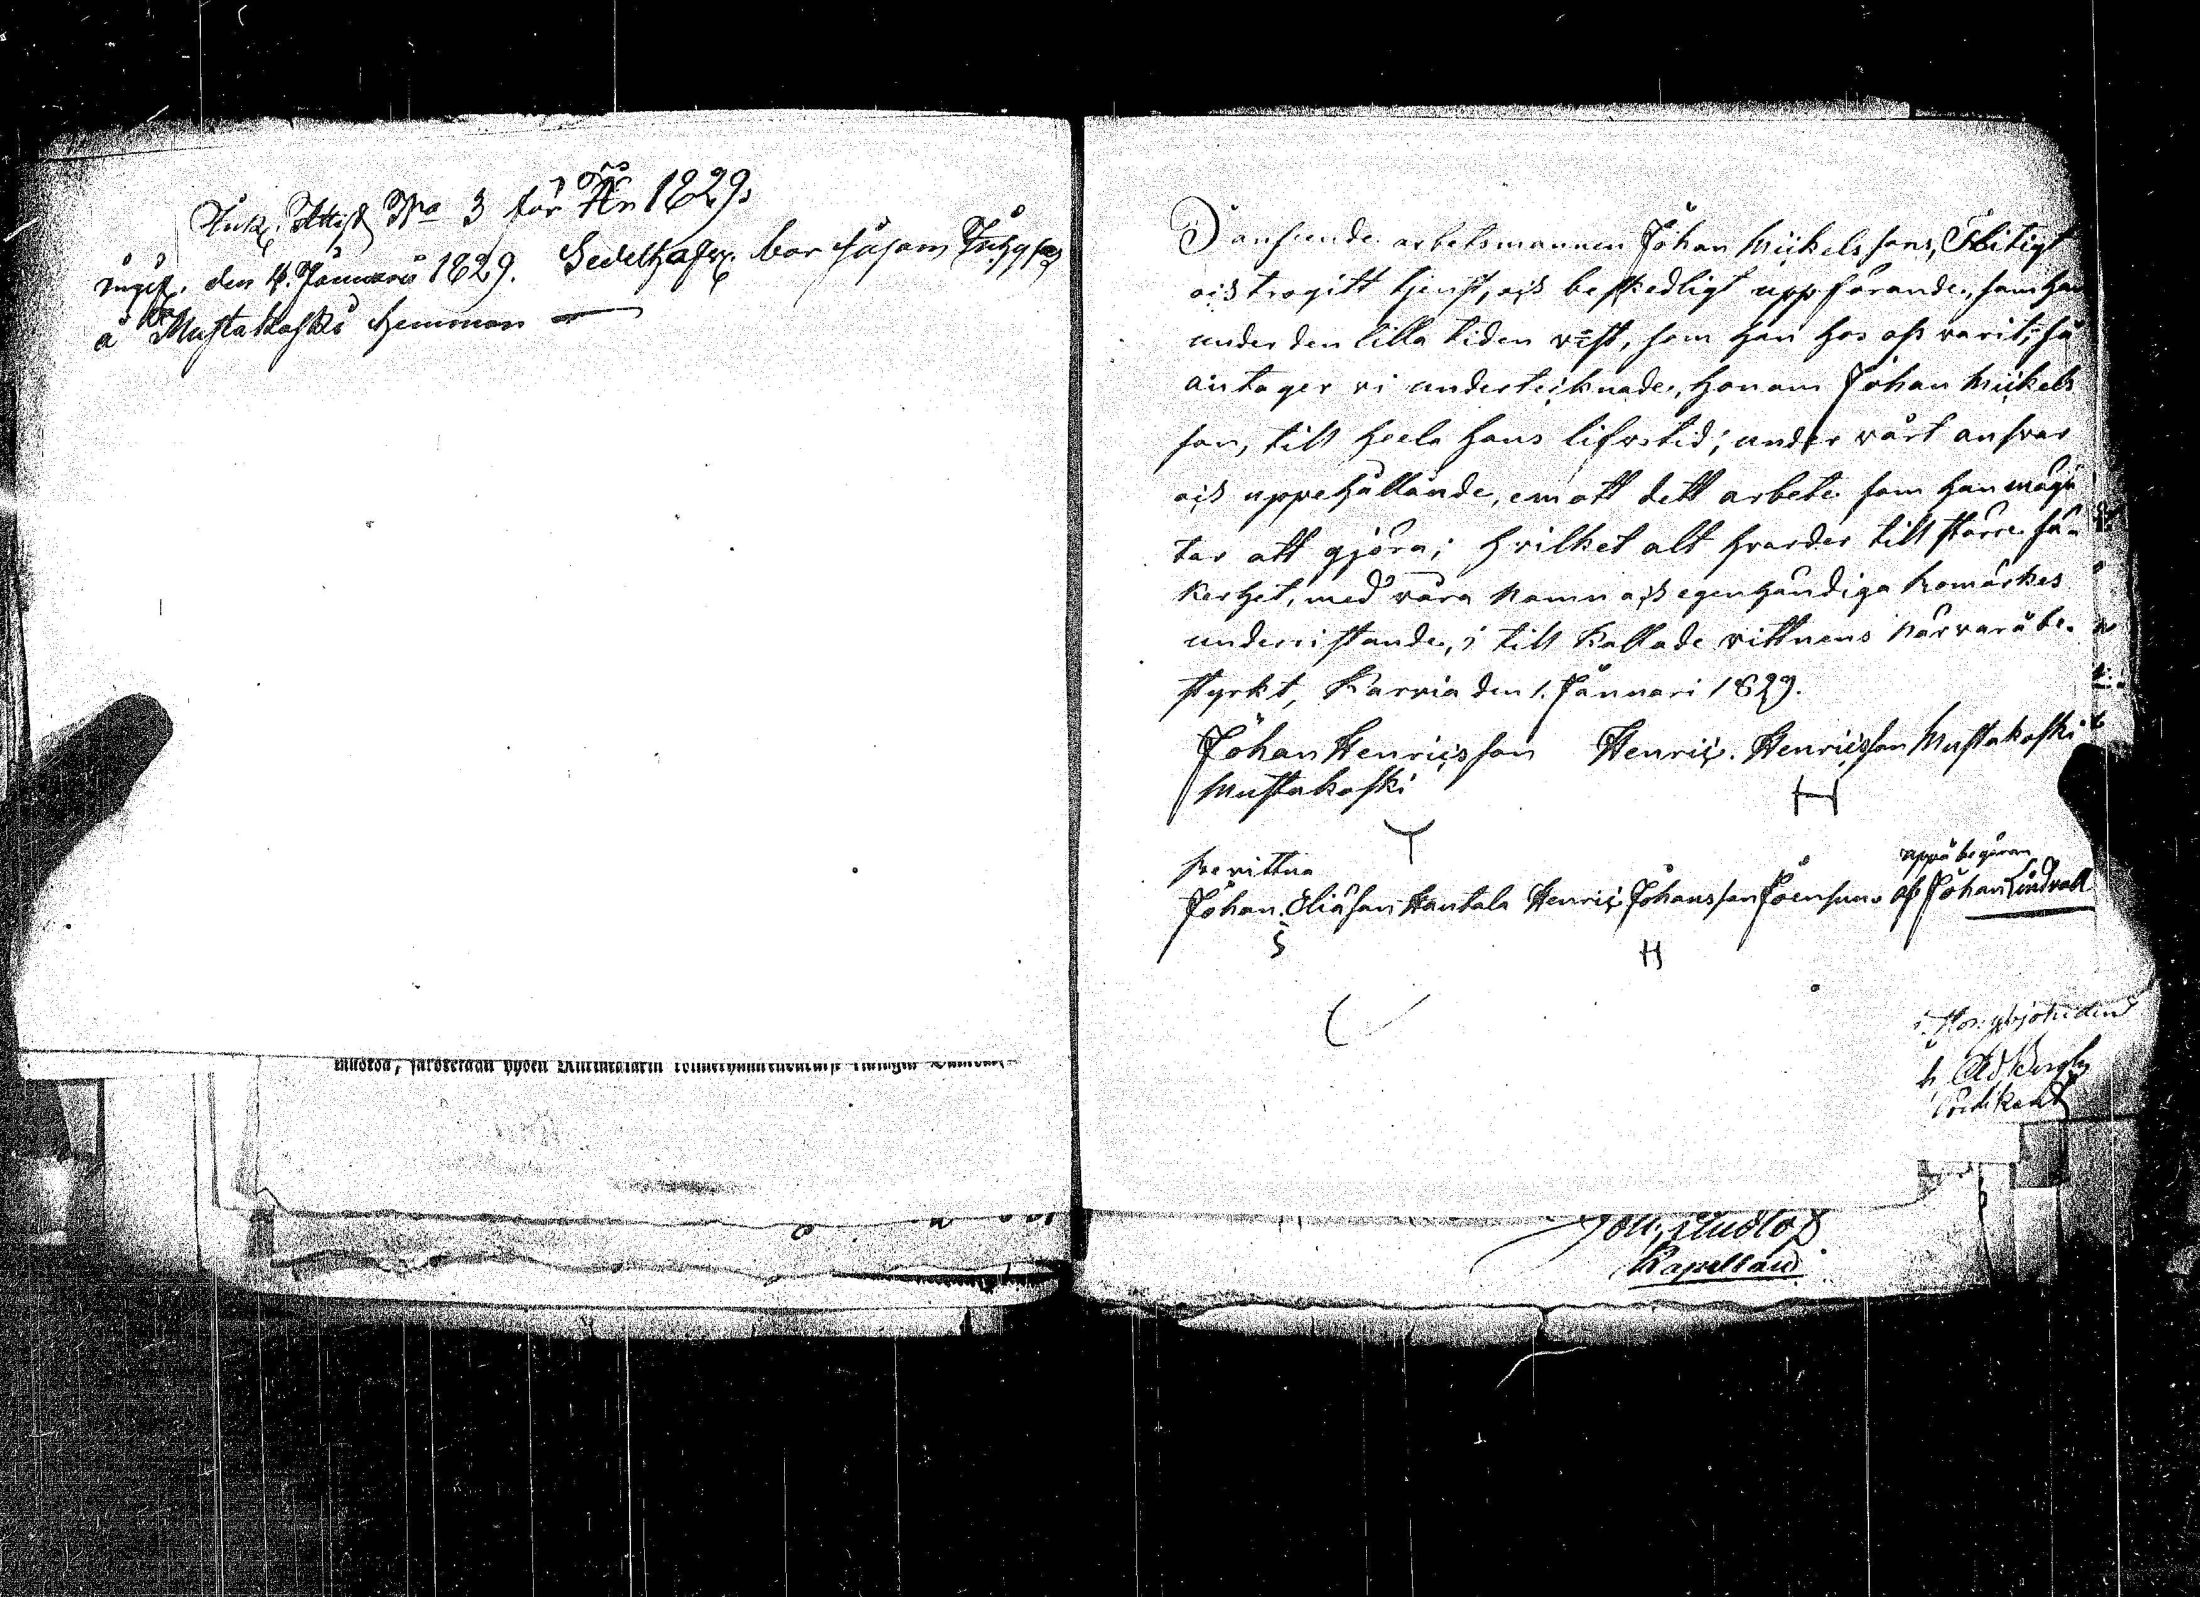 Attest No 3 för År 1829.
ingif. den 4. Januarii 1829. Sedelhafv. bor såsom Inhyses
å Mustakoski hemman
I anseende arbetsmannen Johan Mickelssons, Flitigt
och trogitt tjenst, och beskedligt uppförande, som han
under den lilla tiden vist, som han hos oss varit; så
antager vi undertecknade, honom Johan Mickels
son, till heela hans lifstid; under vårt ansvar
och uppehållande, emott dett arbete som han mägtar
tar att gjöra; hvilket alt härder till större sä
kerhet, med våra namn och egenhändiga bomärkes
underristande, i till kallade vittnens närvaro be.
styrkt, Karvia den 1. Januari 1829.
Johan Henricsson Henric Henricsson Mustakoski
Mustakoski
H
uppå begäran
Bevittna
Johan Eliasson Hautala Henric Johansson Joensuu af Johan Lindvall
H
Kapellan